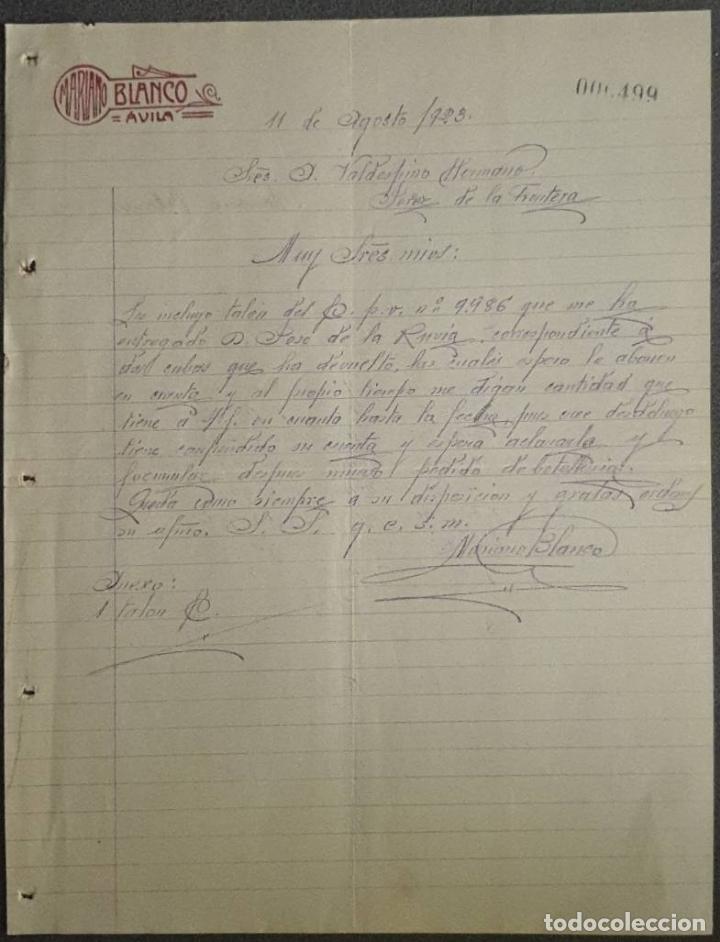 MARIANO BLANCO
= AVILA =
000.499
11 de Agosto /923.
Srēs. A. Valdespino Hermano.
Jerez de la Frontera
Muy Srēs mios:
incluyo talón del p.v. nº 9.986 que me ha
entregado D. José de la correspondiente á
dos que ha devuelto, las cuales espero le abonen
en cuenta y al propio tiempo me digan cantidad que
tiene á en cuenta hasta la fecha, pues cree desde luego
tiene confundido su cuenta y espera aclararla y
formular despues nuevo pedido de botelleria.
Queda como siempre a su disposicion y gratas ordenes
su afmo. S. S. q. e. s. m.
Mariano Blanco
Anexo:
1 talon
todocoleccion